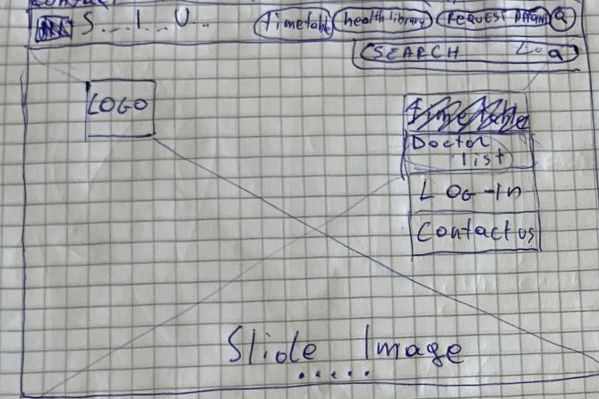 S...I...U..
timetable
health library
REQUEST
SEARCH
LOGO
Doctor
list
LOG-In
Contact us
Slide Image